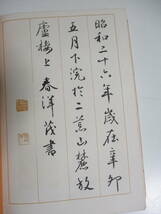 昭和二十六年歳在辛卯
五月下浣於二荒山麓放
廬楼上 春洋茂書